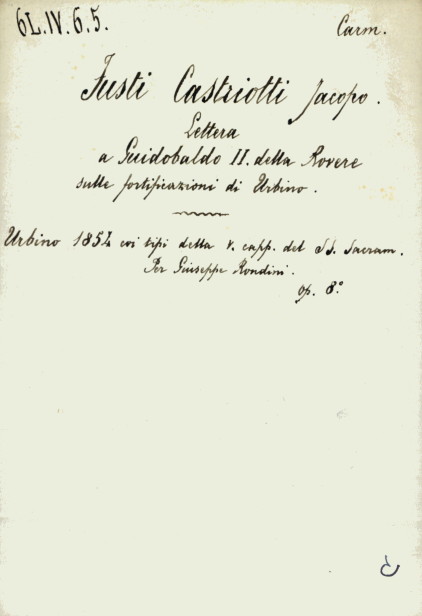 6L.IV.6.5.
Carm.
Fusti Castriotti Jacopo.
Lettera
a Guidobaldo II. della Rovere
sulle fortificazioni di Urbino.
Urbino 1854 coi tipi della v. capp. del SS. Sacram.
Per Giuseppe Rondini.
op. 8.°